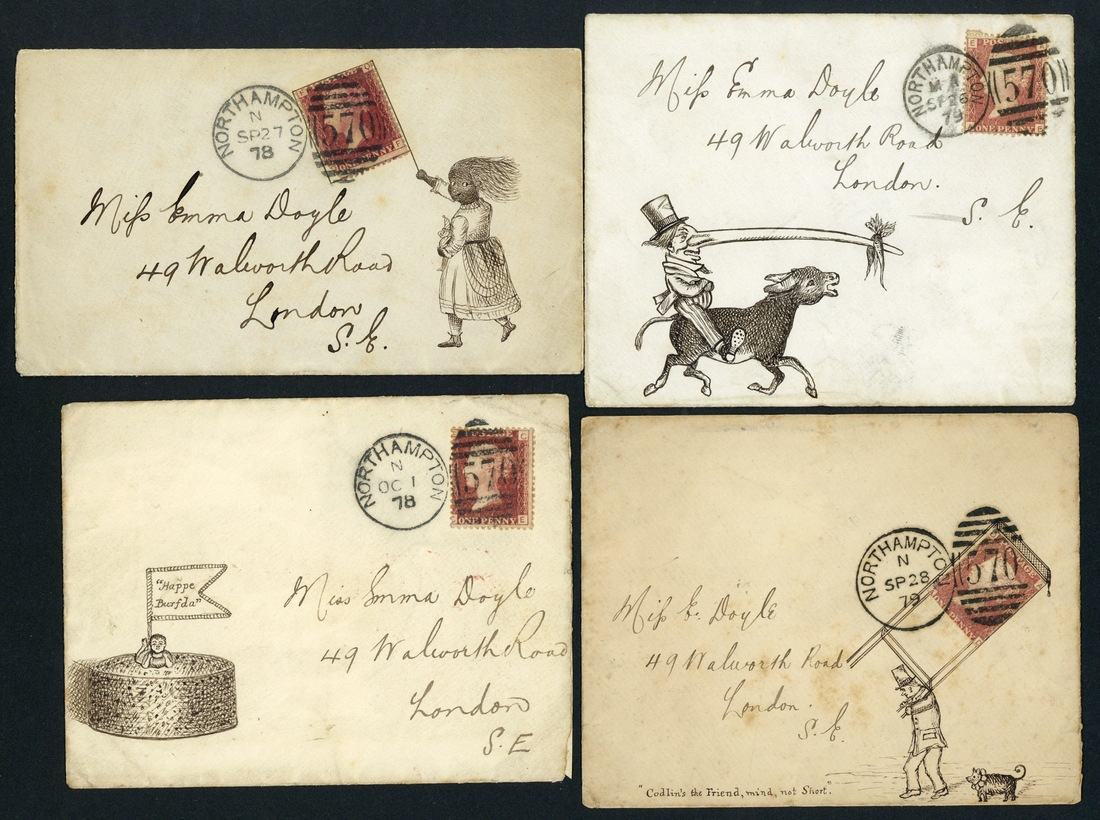 NORTHAMPTON
N
SP27
78
570
ONE PENNY
Miss Emma Doyle
49 Walworth Road
London
S.E.
NORTHAMPTON
SP26
79
570
ONE PENNY
E
Miss Emma Doyle
49 Walworth Road
London.
S. E.
NORTHAMPTON
N
OC 1
78
570
ONE PENNY
E
"Happe
Burfda"
Miss Emma Doyle
49 Walworth Road
London
S.E
NORTHAMPTON
N
SP28
79
570
Miss E. Doyle
49 Walworth Road
London.
S.E.
"Codlin's the Friend, mind, not Short."